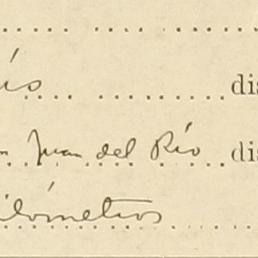 ís dis
n Juan del Río dis
ilómetros